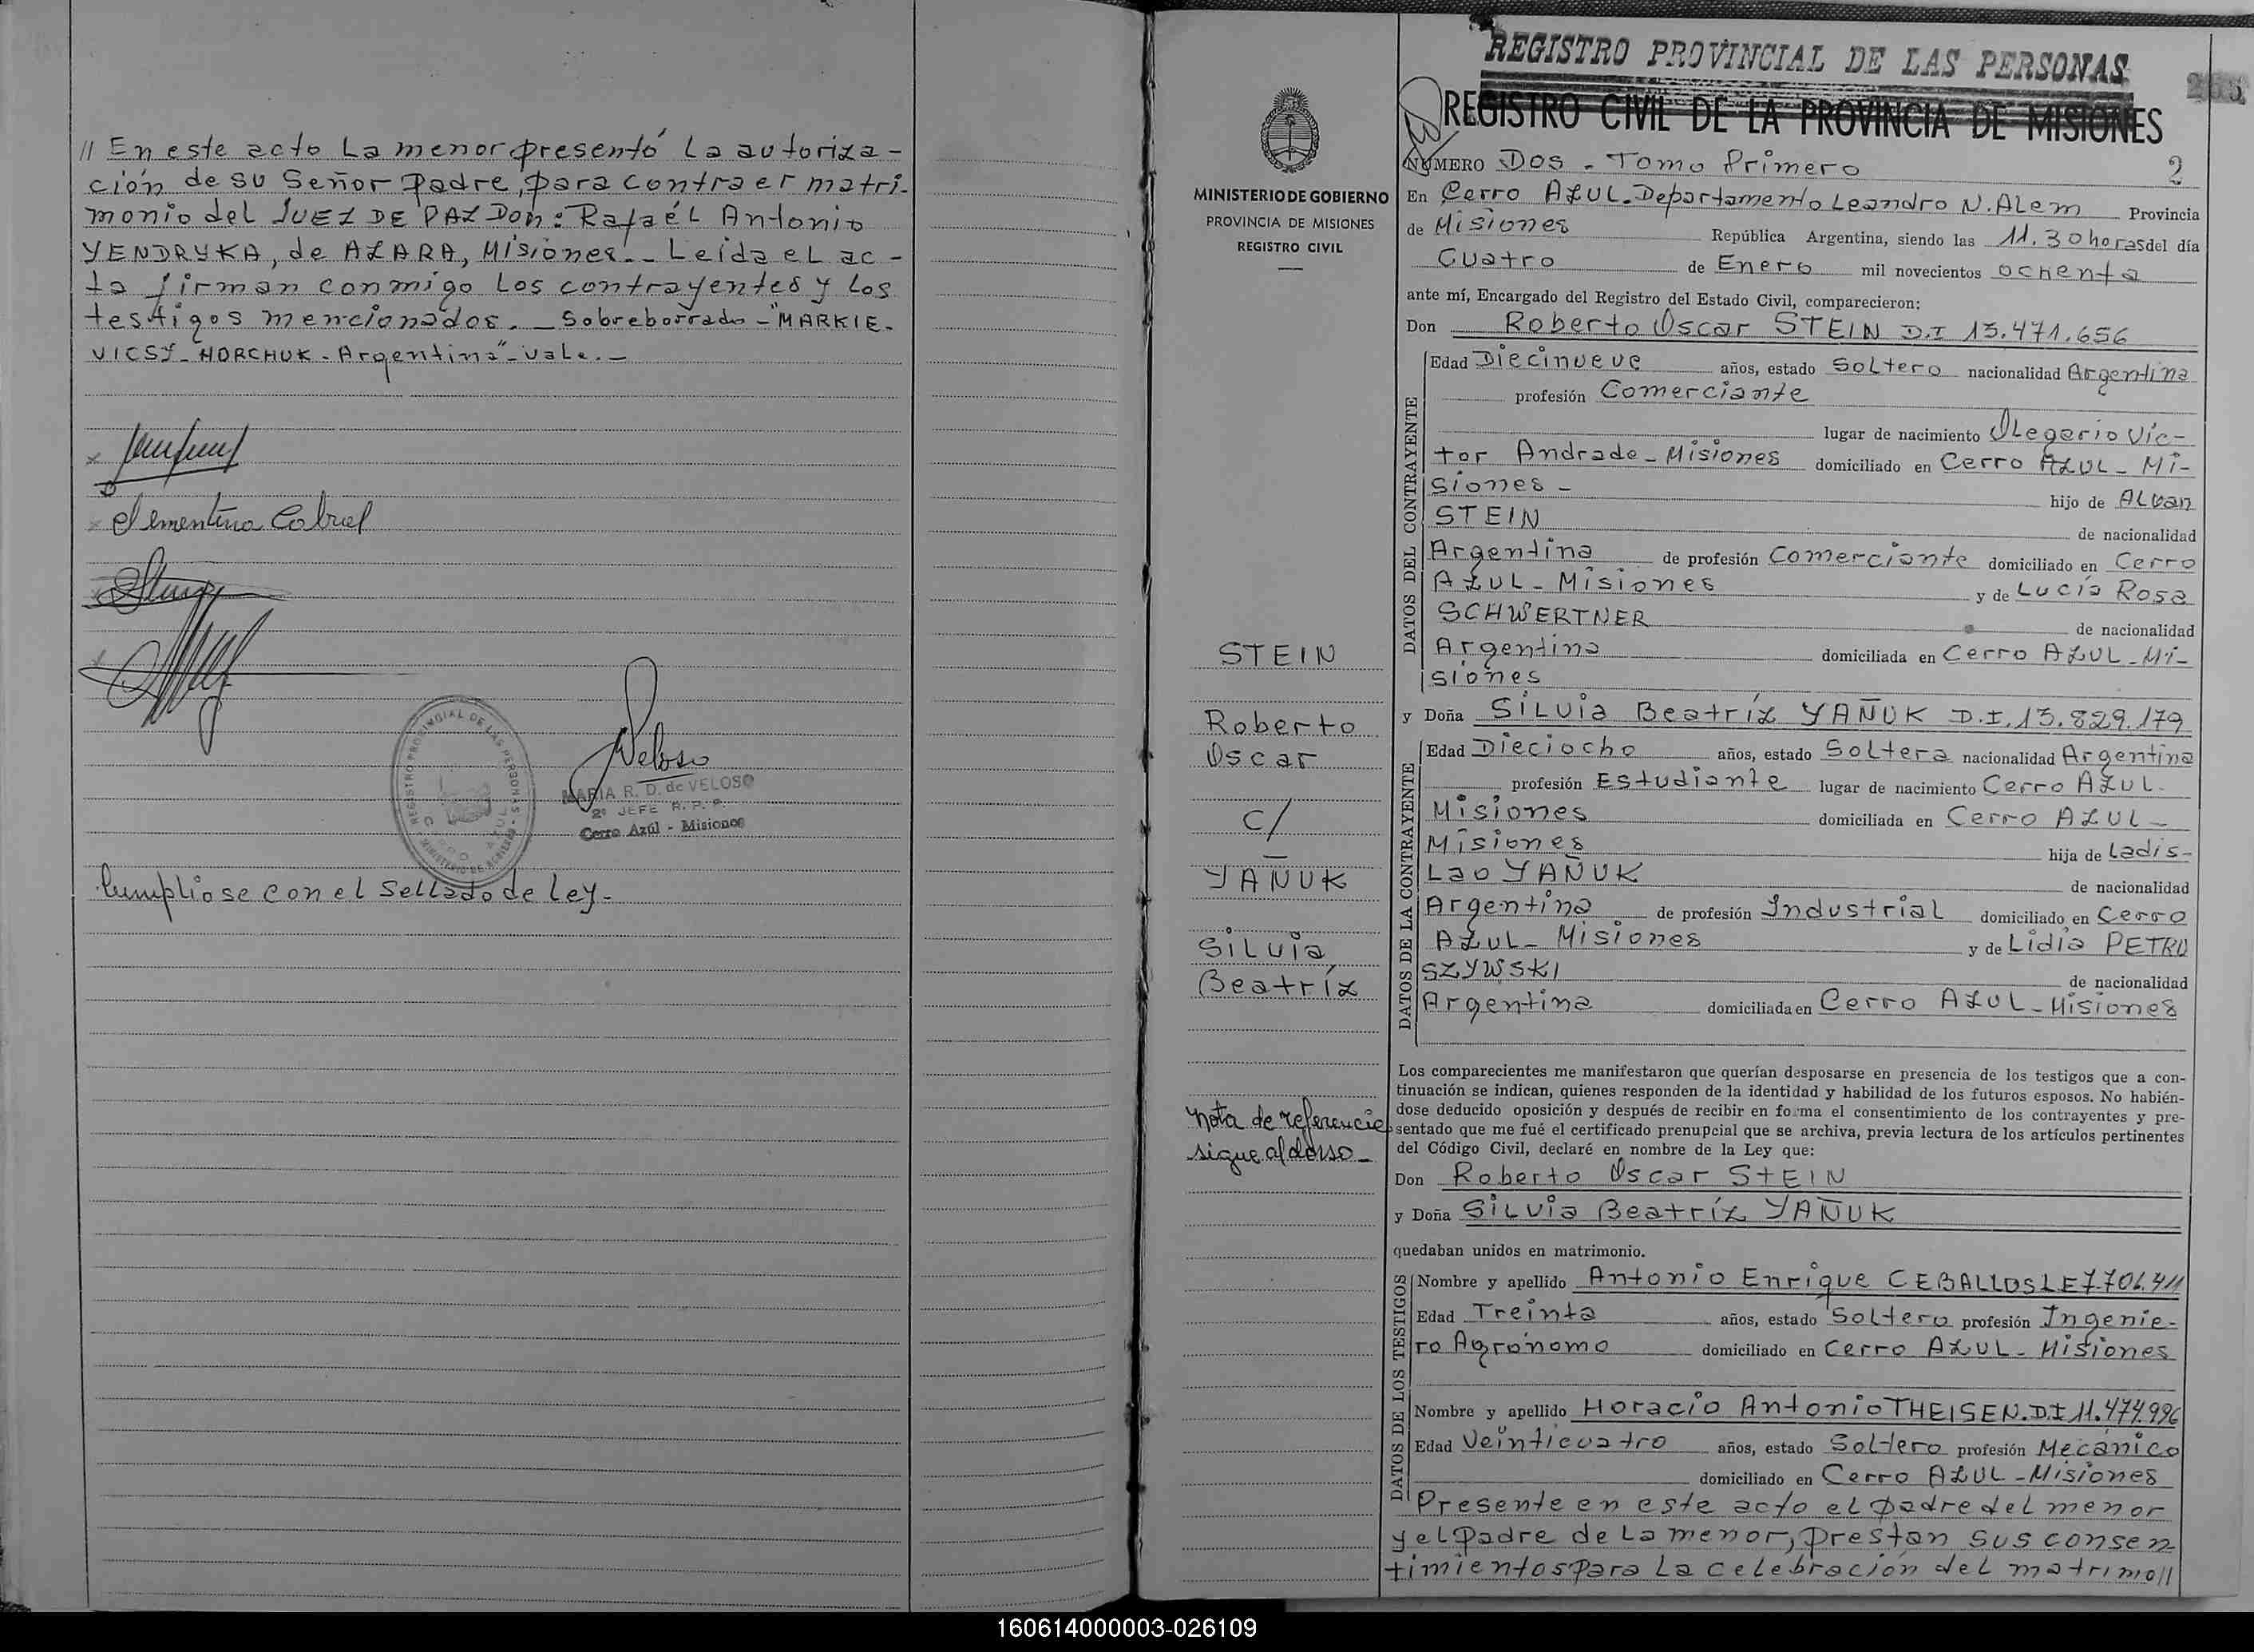 // En este acto La menor presentó La autoriza-
ción de su Señor Padre, para contraer matri-
monio del JUEZ DE PAZ Don: Rafaél Antonio
YENDRYKA, de AZARA, Misiones.- Leida el ac-
ta firman conmigo Los contrayentes y Los
testigos mencionados. - Sobreborrado - "MARKIE-
VICSZ - HORCHUK - Argentina" - vale. -
Clementina Cabral
REGISTRO PROVINCIAL DE LAS PERSONAS
MINISTERIO DE GOBIERNO
CERRO AZUL
Veloso
MARIA R. D. de VELOSO
2º JEFE R. P. P.
Cerro Azúl - Misiones
Cumpliose con el sellado de Ley.-
MINISTERIO DE GOBIERNO
PROVINCIA DE MISIONES
REGISTRO CIVIL
STEIN
Roberto
Oscar
c/
YAÑUK
Silvia
Beatríz
Nota de referencia
sigue al dorso -
REGISTRO PROVINCIAL DE LAS PERSONAS
REGISTRO CIVIL DE LA PROVINCIA DE MISIONES
NUMERO Dos - Tomo Primero 2
En Cerro AZUL. Departamento Leandro N. ALem Provincia
de Misiones República Argentina, siendo las 11.30 horas del día
Cuatro de Enero mil novecientos ochenta
ante mí, Encargado del Registro del Estado Civil, comparecieron:
Don Roberto Oscar STEIN D.I 13.471.656
DATOS DEL CONTRAYENTE
Edad Diecinueve años, estado Soltero nacionalidad Argentina
profesión Comerciante
lugar de nacimiento Olegario Víc-
tor Andrade - Misiones domiciliado en Cerro AZUL - Mi-
siones - hijo de ALvan
STEIN de nacionalidad
Argentina de profesión Comerciante domiciliado en Cerro
AZUL - Misiones y de Lucía Rosa
SCHWERTNER de nacionalidad
Argentina domiciliada en Cerro AZUL - Mi-
siones
y Doña SiLvia Beatríz YAÑUK D.I. 13.829.179
DATOS DE LA CONTRAYENTE
Edad Dieciocho años, estado Soltera nacionalidad Argentina
profesión Estudiante lugar de nacimiento Cerro AZUL-
Misiones domiciliada en Cerro AZUL -
Misiones hija de Ladis-
Lao YAÑUK de nacionalidad
Argentina de profesión Industrial domiciliado en Cerro
AZUL - Misiones y de Lidia PETRU
SZYWSKI de nacionalidad
Argentina domiciliada en Cerro AZUL - Misiones
Los comparecientes me manifestaron que querían desposarse en presencia de los testigos que a con-
tinuación se indican, quienes responden de la identidad y habilidad de los futuros esposos. No habién-
dose deducido oposición y después de recibir en forma el consentimiento de los contrayentes y pre-
sentado que me fué el certificado prenupcial que se archiva, previa lectura de los artículos pertinentes
del Código Civil, declaré en nombre de la Ley que:
Don Roberto Oscar STEIN
y Doña SiLvia Beatríz YAÑUK
quedaban unidos en matrimonio.
DATOS DE LOS TESTIGOS
Nombre y apellido Antonio Enrique CEBALLOS LE 7.706.411
Edad Treinta años, estado Soltero profesión Ingenie-
ro Agrónomo domiciliado en Cerro AZUL - Misiones
Nombre y apellido Horacio Antonio THEISEN. D.I 11.474.996
Edad Veinticuatro años, estado Soltero profesión Mecánico
domiciliado en Cerro AZUL - Misiones
Presente en este acto el padre del menor
y el Padre de La menor, prestan sus consen
timientos para La celebración del matrimo//
160614000003-026109